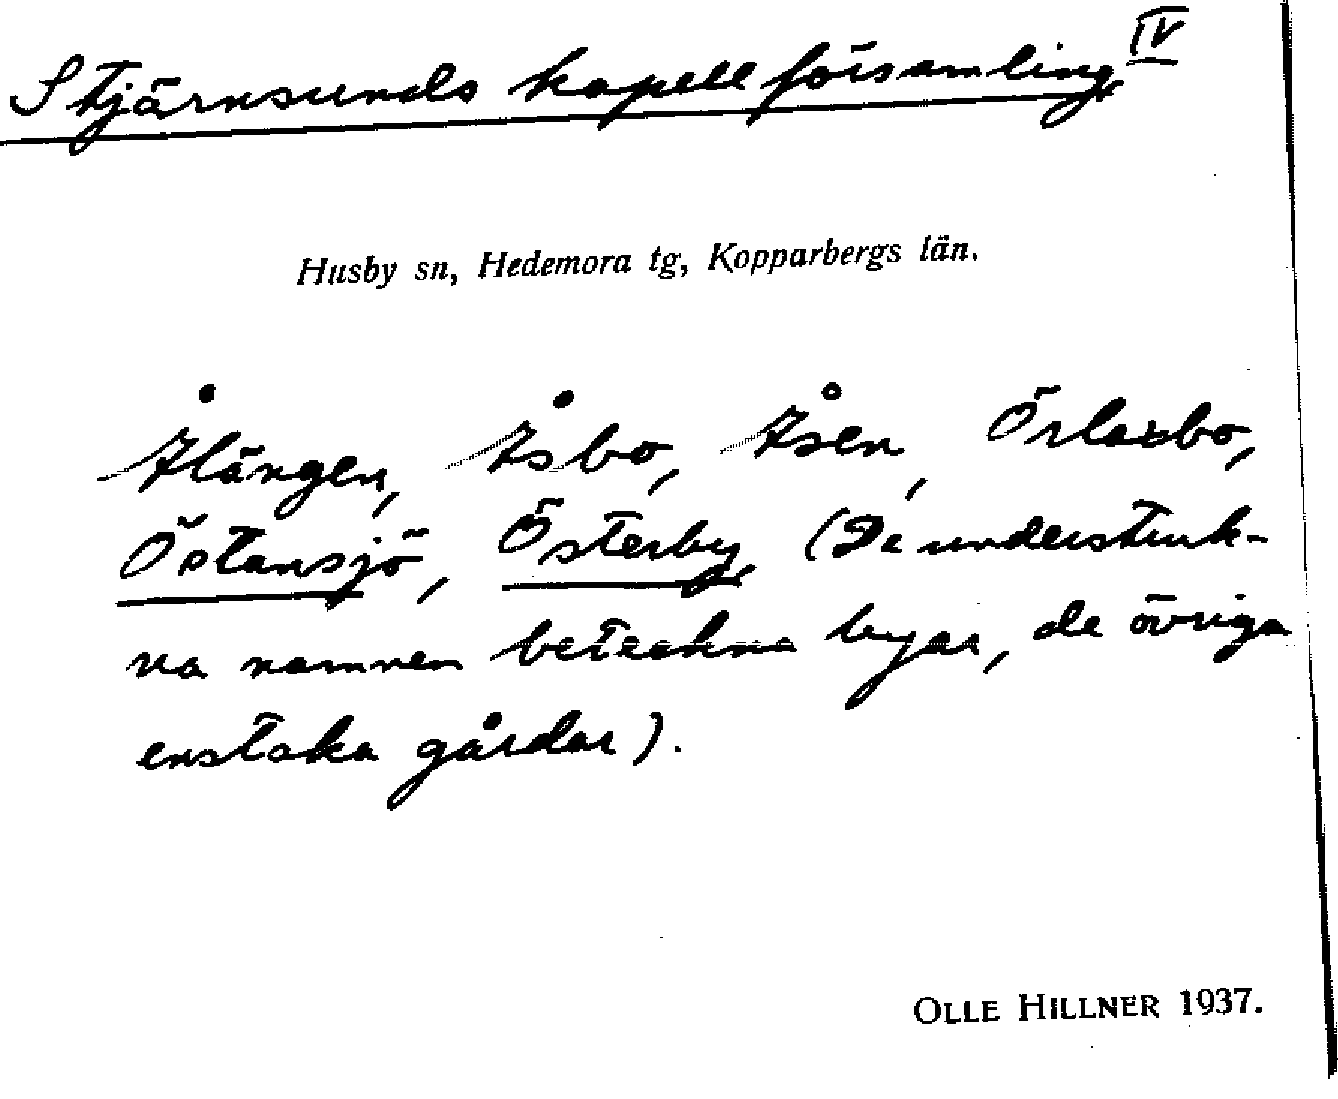 Stjärnsunds kapellförsamling IV
Husby sn, Hedemora tg, Kopparbergs län.
Ålängen, Åsbo, Åsen, Örlasbo,
Östansjö, Österby (De understruk-
na namnen beteckna byar, de övriga
enstaka gårdar).
OLLE HILLNER 1937.